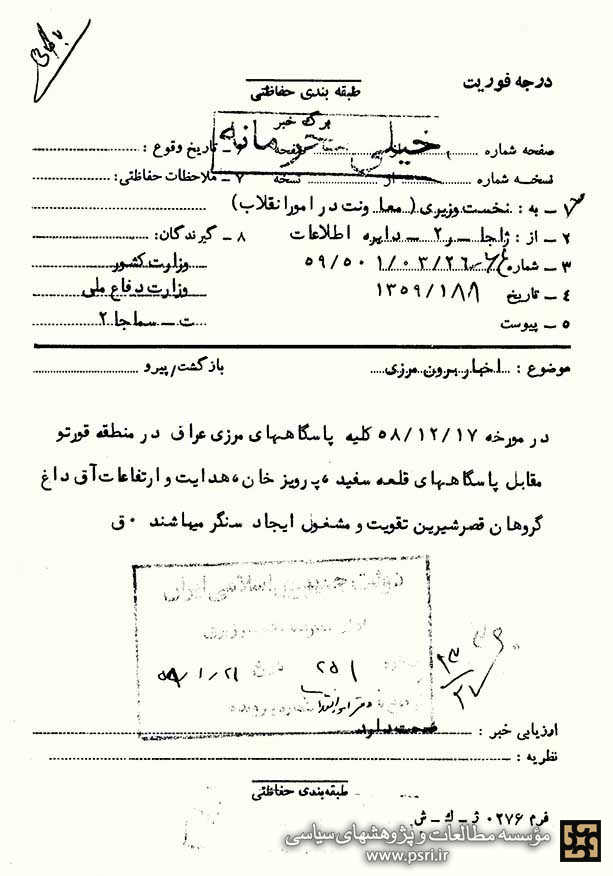 بایگانی
درجه فوریت
طبقه بندی حفاظتی
برگ خبر
خیلی محرمانه
صفحه شماره ۱ از صفحه ۶ ـ تاریخ وقوع :
نسخه شماره از نسخه ۷ ـ ملاحظات حفاظتی :
۱ ـ به : نخست وزیری ( معاونت در امور انقلاب )
۲ ـ از : ژاجا ـ ر۲ ـ دایره اطلاعات ۸ ـ گیرندگان :
۳ ـ شماره ۵۹/۵۰۱/۰۳/۲۶ وزارت کشور
۴ ـ تاریخ ۱۳۵۹/۱/۱۸ وزارت دفاع ملی
۵ ـ پیوست ت ـ سماجا ۲
موضوع : اخبار برون مرزی بازگشت/پیرو
در مورخه ۵۸/۱۲/۱۷ کلیه پاسگاههای مرزی عراق در منطقه قورتو
مقابل پاسگاههای قلعه سفید ، پرویز خان، هدایت و ارتفاعات آق داغ
گروهان قصرشیرین تقویت و مشغول ایجاد سنگر میباشند ۰ ق
جمهوری اسلامی ایران
۲۵۱ ۵۹/۱/۲۱
دفتر امور انقلاب
۲۳/۲
اوزیابی خبر : صحت دارد
نظریه :
طبقه‌بندی حفاظتی
فرم ۰۲۷۶ ژ ـ ک ـ ش
مؤسسه مطالعات و پژوهشهای سیاسی
www.psri.ir